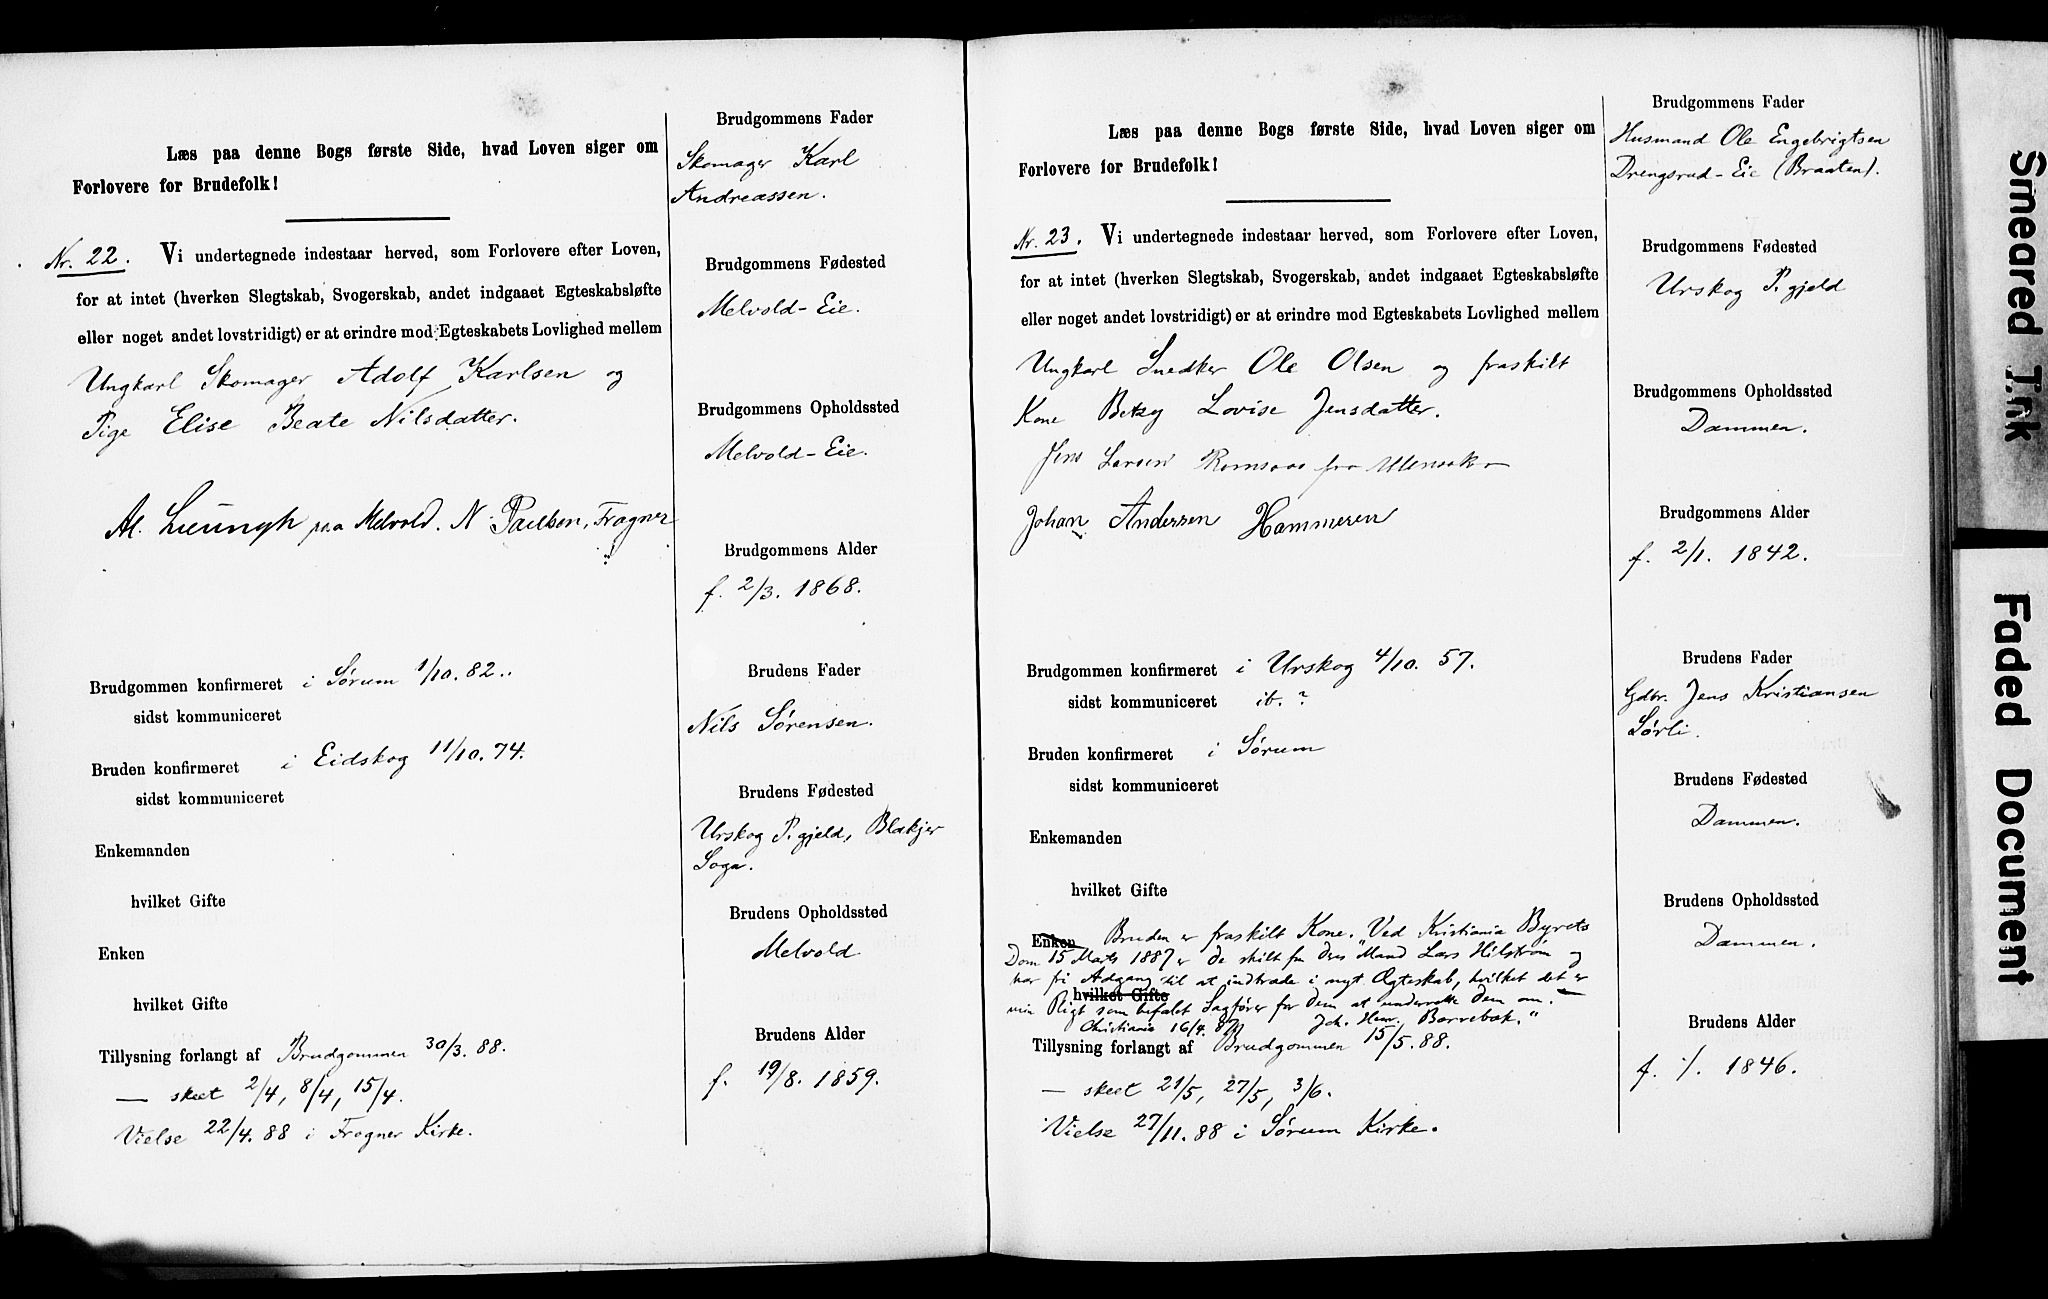 Læs paa denne Bogs første Side, hvad Loven siger om
Forlovere for Brudefolk!
Nr. 22. Vi undertegnede indestaar herved, som Forlovere efter Loven,
for at intet (hverken Slegtskab, Svogerskab, andet indgaaet Egteskabsløfte
eller noget andet lovstridigt) er at erindre mod Egteskabets Lovlighed mellem
Ungkarl Skomager Adolf Karlsen og
Pige Elise Beate Nilsdatter.
Al. Lieungh paa Melvold. N. Paulsen, Frogner
Brudgommen konfirmeret i Sørum 1/10. 82.
sidst kommuniceret
Bruden konfirmeret i Eidskog 11/10. 74.
sidst kommuniceret
Enkemanden
hvilket Gifte
Enken
hvilket Gifte
Tillysning forlangt af Brudgommen 30/3. 88.
— skeet 2/4, 8/4, 15/4.
Vielse 22/4. 88 i Frogner Kirke.
Brudgommens Fader
Skomager Karl
Andreassen.
Brudgommens Fødested
Melvold-Eie.
Brudgommens Opholdssted
Melvold-Eie.
Brudgommens Alder
f. 2/3. 1868.
Brudens Fader
Nils Sørensen.
Brudens Fødested
Urskog P.gjeld, Blakjer
Sogn.
Brudens Opholdssted
Melvold
Brudens Alder
f. 19/8. 1859.
Læs paa denne Bogs første Side, hvad Loven siger om
Forlovere for Brudefolk!
Nr. 23. Vi undertegnede indestaar herved, som Forlovere efter Loven,
for at intet (hverken Slegtskab, Svogerskab, andet indgaaet Egteskabsløfte
eller noget andet lovstridigt) er at erindre mod Egteskabets Lovlighed mellem
Ungkarl Snedker Ole Olsen og fraskilt
Kone Betzy Lovise Jensdatter.
Jens Larsen Romsaas fra Ullensaker
Johan Andersen Hammeren
Brudgommen konfirmeret i Urskog 4/10. 57.
sidst kommuniceret ib. ?
Bruden konfirmeret i Sørum
sidst kommuniceret
Enkemanden
hvilket Gifte
Enken Bruden er fraskilt Kone. Ved Kristiania Byrets
Dom 15 Marts 1887 er de skilt fra Mand Lars Hilstrøm og
har fri Adgang til at indtræde i nyt Ægteskab, hvilket det er
hvilket Gifte
min Pligt som befalet Sagfører for Dem at underrette Dem om.
Christiania 16/4. 87 Joh. Henr. Borrebæk."
Tillysning forlangt af Brudgommen 15/5. 88.
— skeet 21/5, 27/5, 3/6.
Vielse 27/11. 88 i Sørum Kirke.
Brudgommens Fader
Husmand Ole Engebrigtsen
Drengsrud-Eie (Braaten).
Brudgommens Fødested
Urskog P.gjeld
Brudgommens Opholdssted
Dammen.
Brudgommens Alder
f. 2/1. 1842.
Brudens Fader
Gdbr. Jens Kristiansen
Sørli.
Brudens Fødested
Dammen.
Brudens Opholdssted
Dammen.
Brudens Alder
f. /. 1846.
Smeared Ink
Faded Document